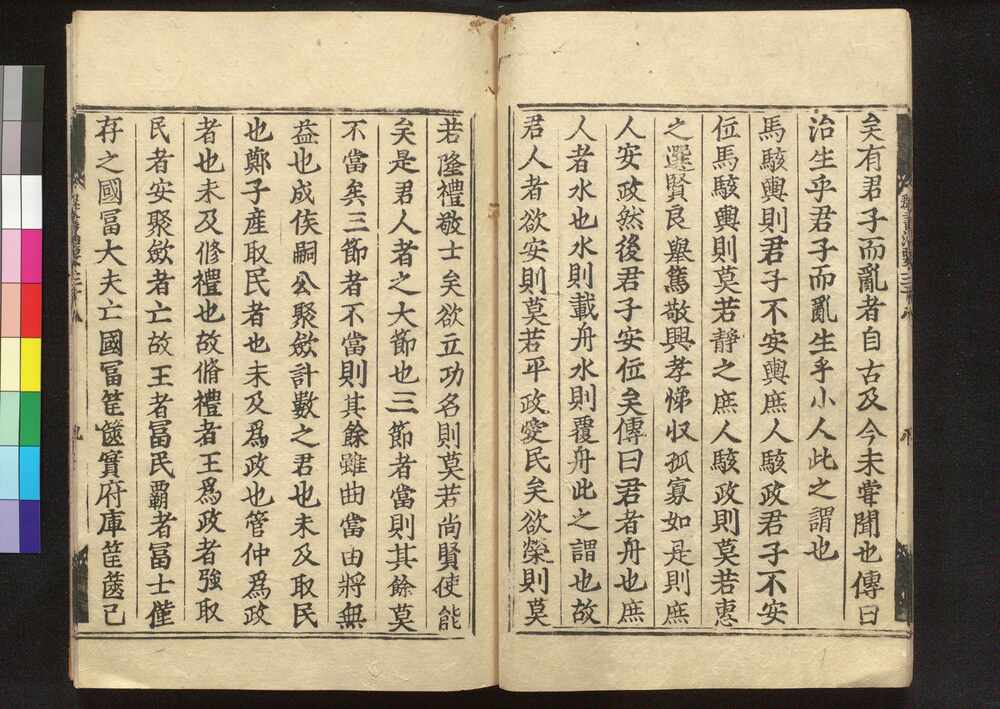 矣有君子而亂者自古及今未甞聞也傳曰
治生乎君子而亂生乎小人此之謂也
馬駭輿則君子不安輿庶人駭政君子不安
位馬駭輿則莫若靜之庶人駭政則莫若惠
之選賢良舉篤敬興孝悌収孤寡如是則庶
人安政然後君子安位矣傳曰君者舟也庶
人者水也水則載舟水則覆舟此之謂也故
君人者欲安則莫若平政愛民矣欲榮則莫
若隆禮敬士矣欲立功名則莫若尚賢使能
矣是君人者之大節也三節者當則其餘莫
不當矣三節者不當則其餘雖曲當由將無
益也成侯嗣公聚斂計數之君也未及取民
也鄭子產取民者也未及爲政也管仲爲政
者也未及修禮也故脩禮者王爲政者強取
民者安聚斂者亡故王者冨民霸者冨士僅
存之國冨大夫亡國冨筐篋實府庫筐篋已